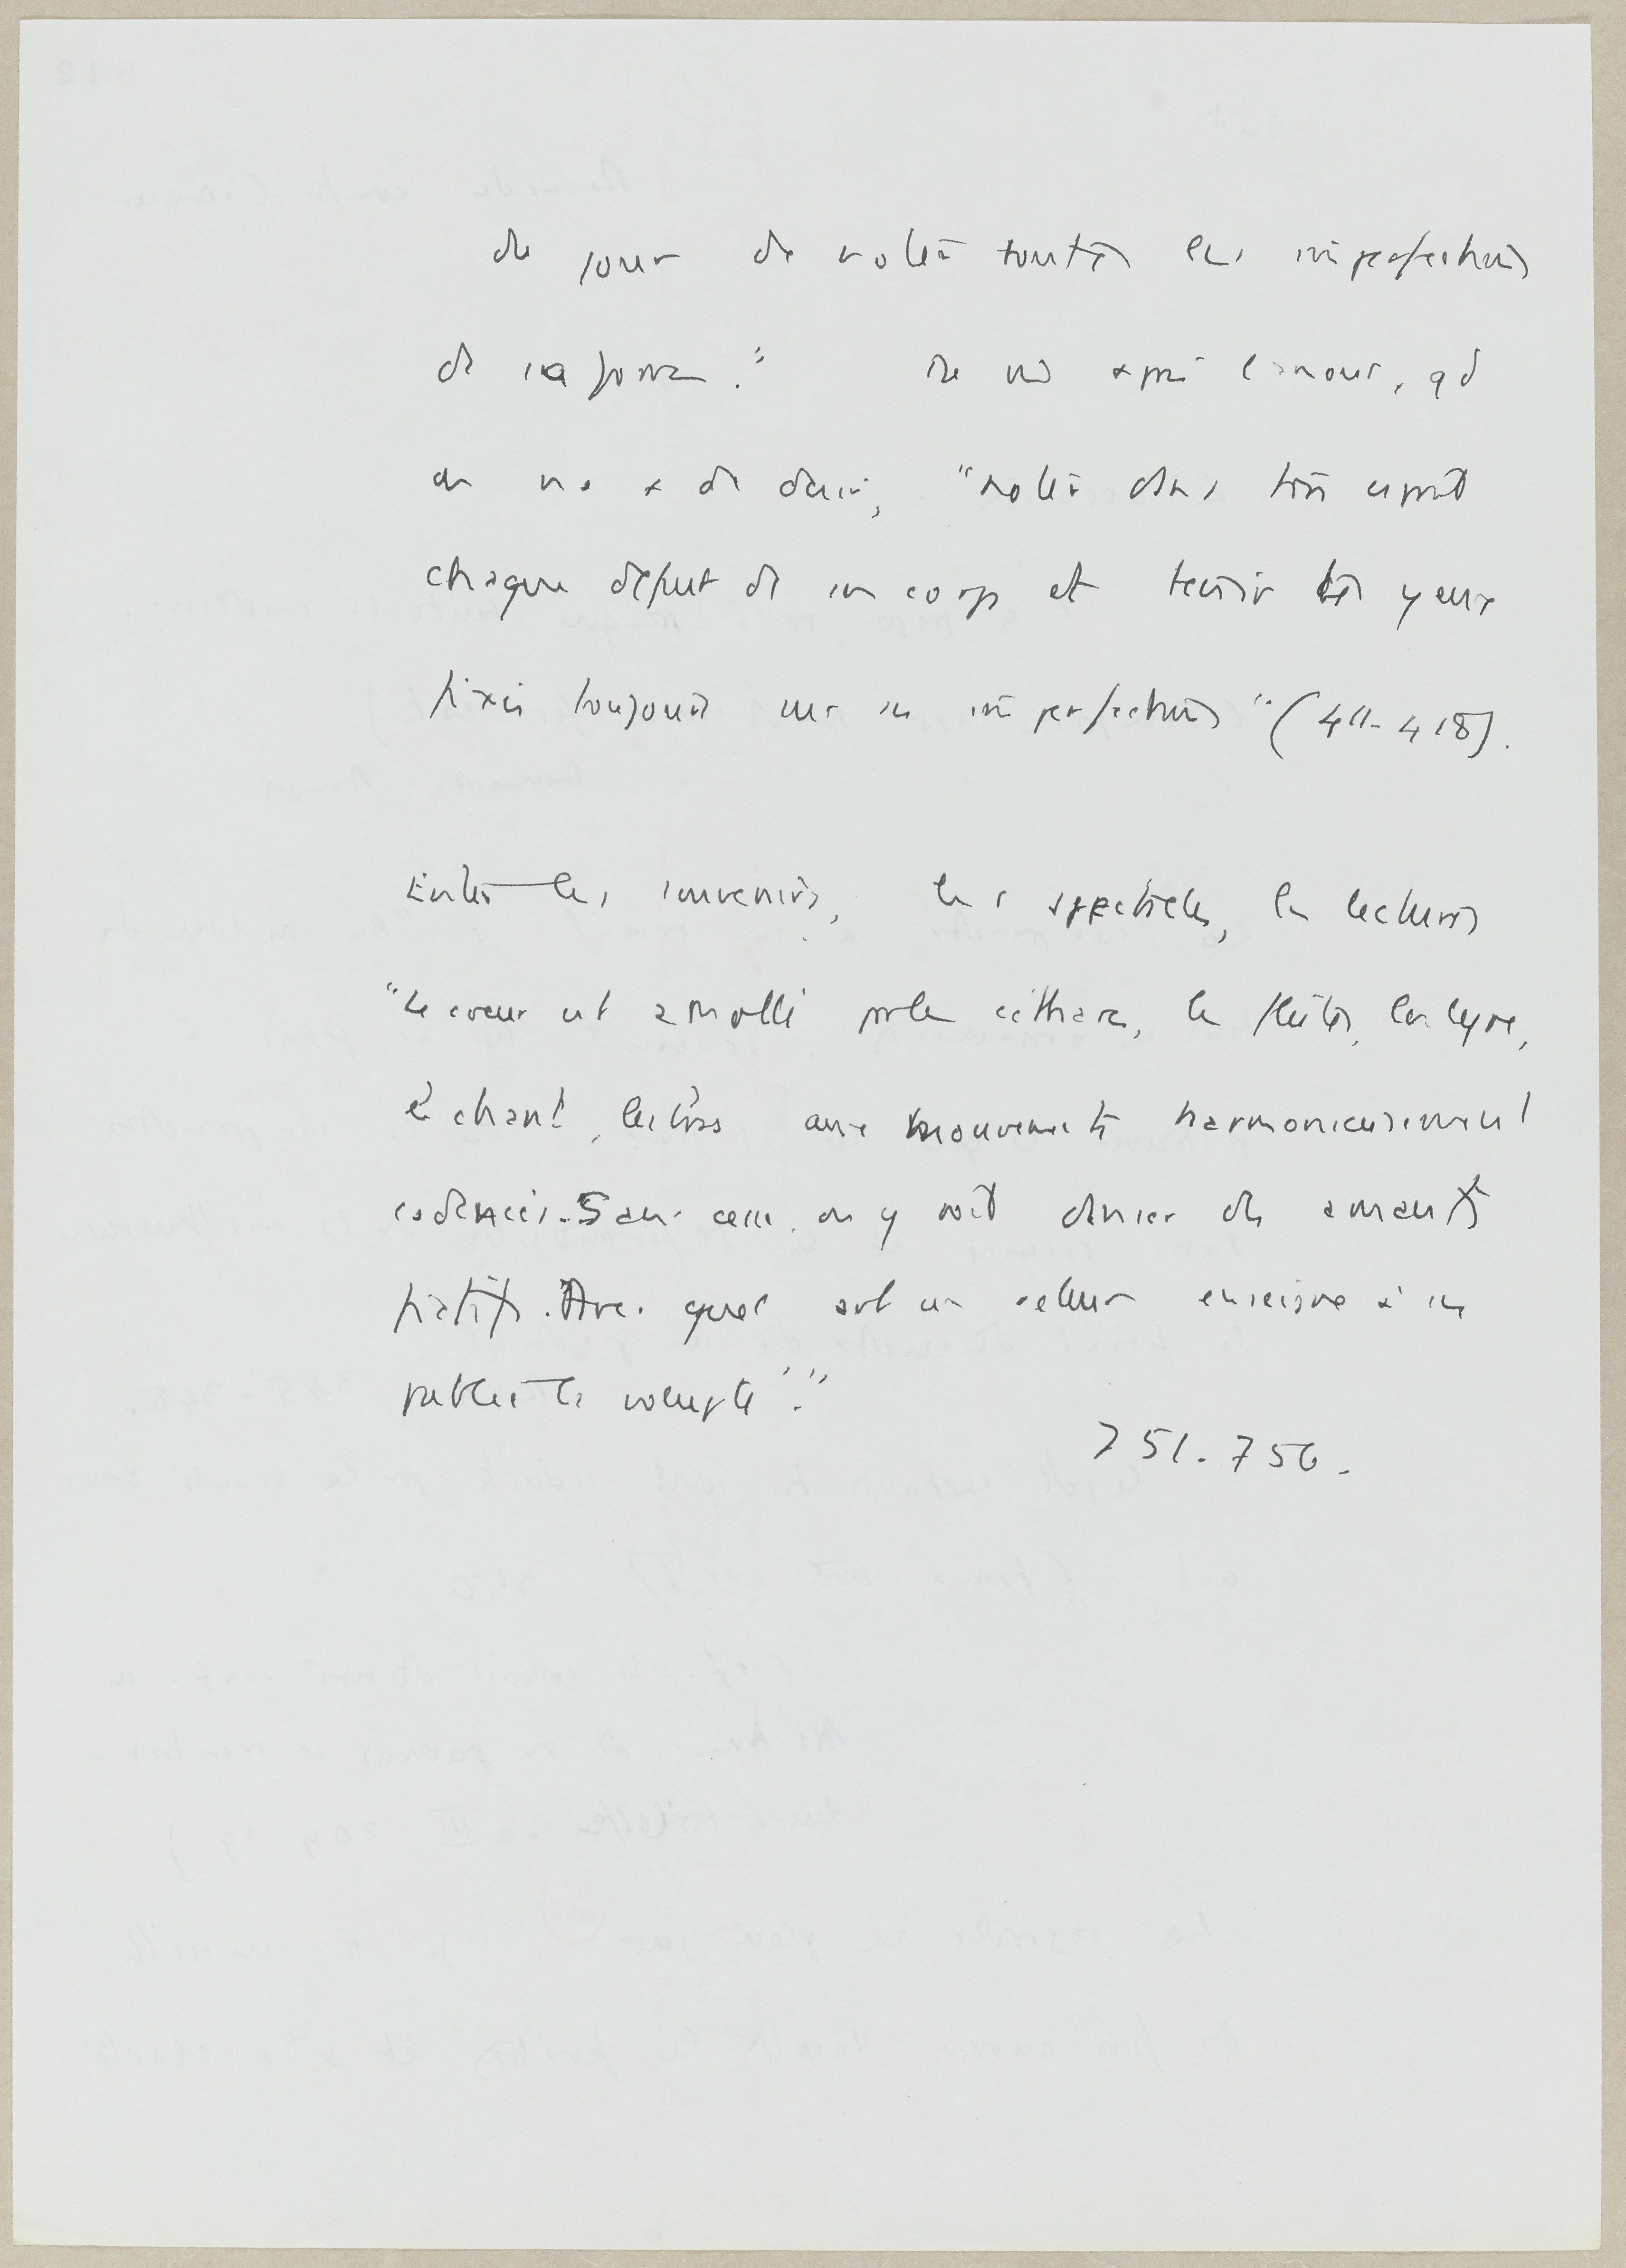 du jour de noter toutes les imperfections
de sa forme." de mê après l'amour, qd
on n'a + de désir, "noter dans ton esprit
chaque défaut de son corps et tenir tes yeux
fixés toujours sur ses imperfections" (411-418).
Eviter les souvenirs, les spectacles, les lectures
"Le coeur est amolli par les cithares, les flûtes, les lyres,
le chant, les bras aux mouvements harmonieusement
cadencés. Sans cesse, on y voit danser des amants
fictifs. Avec quel art un acteur enseigne à son
public la volupté".
751.756.